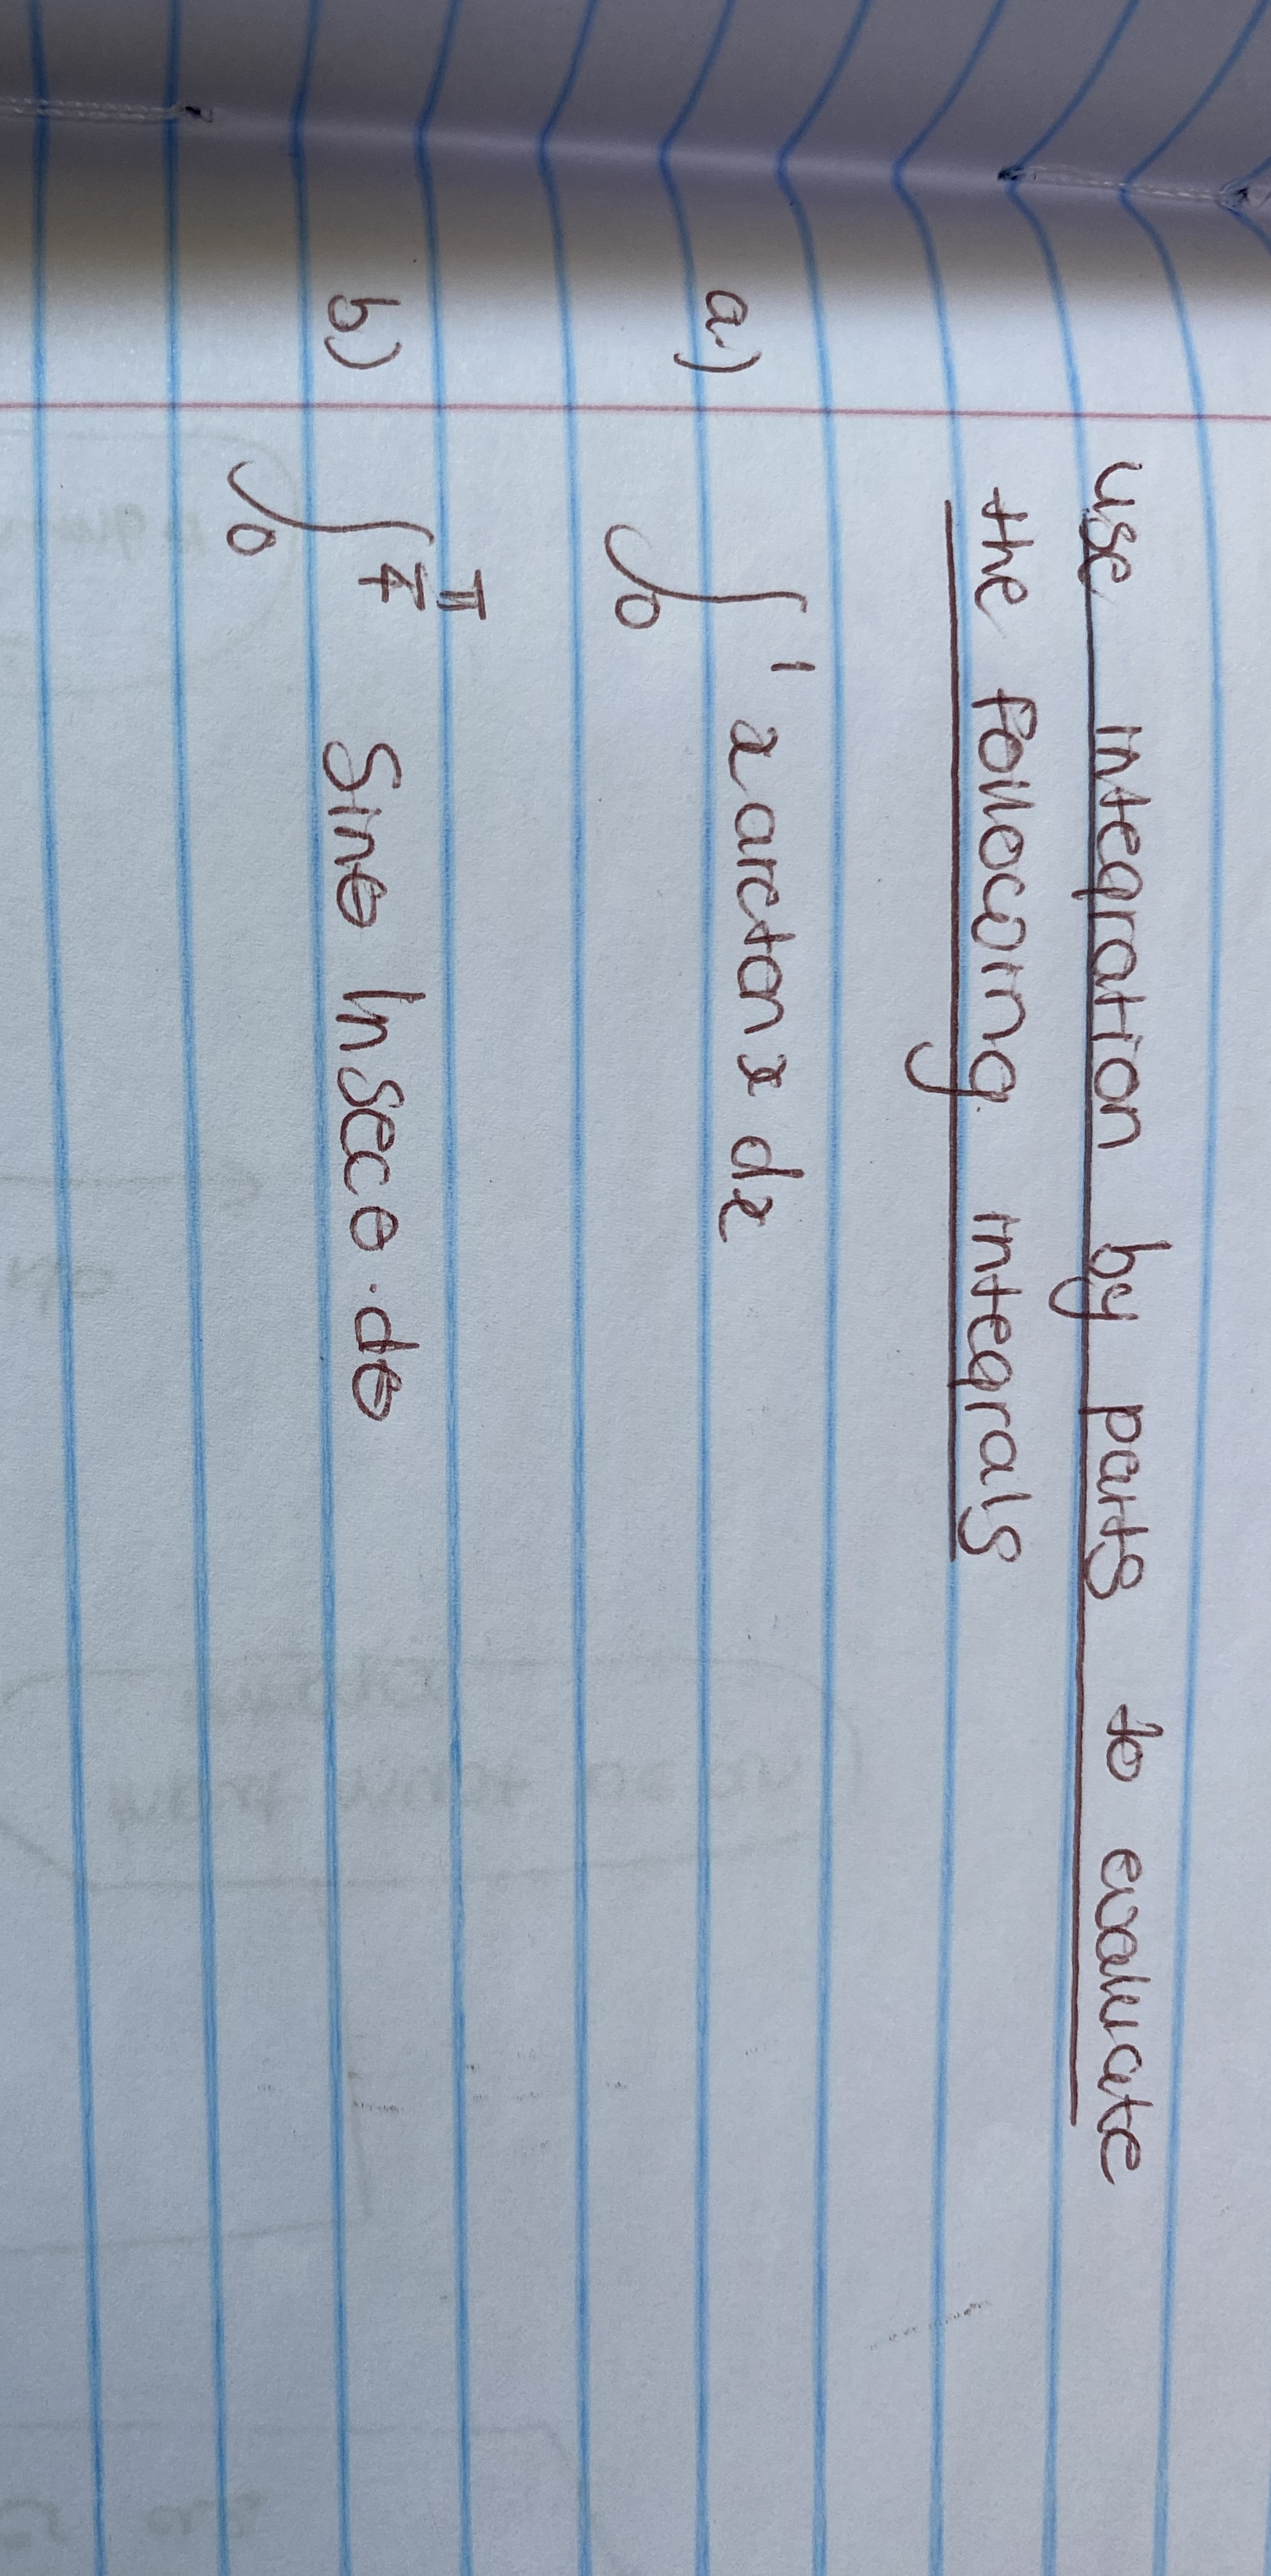 Use integration by parts to evaluate
the following integrals
a) ∫₀¹ x arctan x dx
b) ∫₀^(π/4) Sinθ ln secθ · dθ